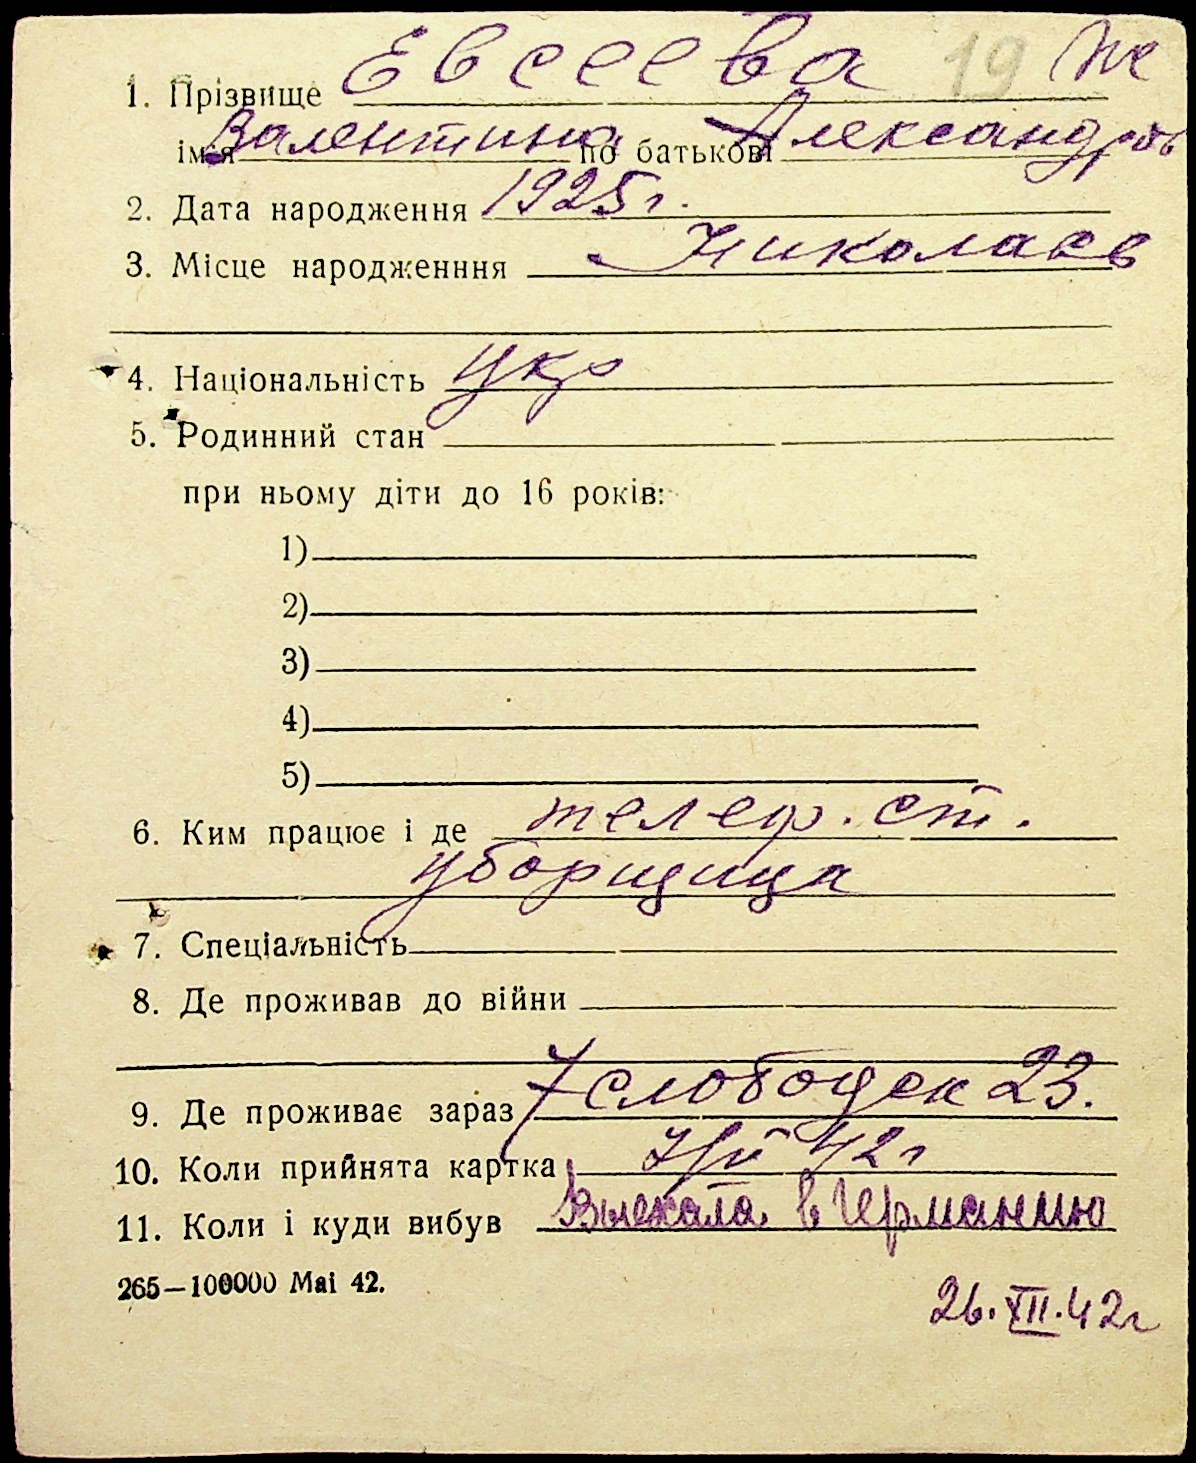 1. Прізвище Евсеева 19 Же
ім'я Валентина по батькові Александровн
2. Дата народження 1925 г.
3. Місце народженння Николаев
4. Національність укр
5. Родинний стан
при ньому діти до 16 років:
1)
2)
3)
4)
5)
6. Ким працює і де телеф. ст.
уборщица
7. Спеціальність
8. Де проживав до війни
9. Де проживає зараз 7 слободск 23.
10. Коли прийнята картка 42 г
11. Коли і куди вибув Выехала в Германию
265—100000 Mai 42.
26.XII.42г